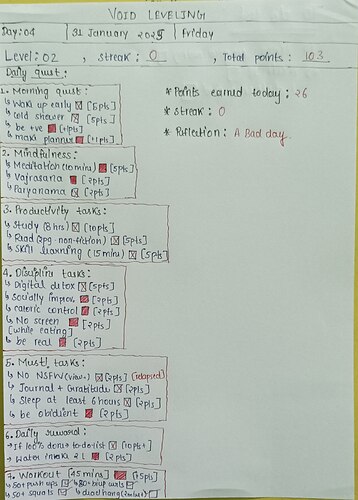 VOID LEVELING
Day:04 31 January 2025 friday
Level: 02 , streak: 0 , Total points: 103
Daily quest:
1. Morning quest:
↳ Wake up early ☒ [5pts]
↳ cold shower ☒ [5pts]
↳ be +ve [+1pts]
↳ make planner [+1pts]
* Points earned today: 26
* streak: 0
* Reflection: A Bad day.
2. Mindfulness:
↳ Meditation (10 mins) [5pts]
↳ Vajrasana [2pts]
↳ Paryanama ☒ [2pts]
3. Productivity tasks:
↳ Study (8 hrs) ☒ [10pts]
↳ Read (2pg. non-fiction) ☒ [5pts]
↳ Skill learning (15 mins) ☒ [5pts]
4. Discipline tasks:
↳ Digital detox ☒ [5pts]
↳ Socially improv. [2pts]
↳ caloric control [2pts]
↳ No screen [2pts]
[while eating]
↳ be real [2pts]
5. Must! tasks:
↳ NO NSFW (view+) ☒ [2pts] (relapsed)
↳ Journal + Gratitude ☒ [2pts]
↳ Sleep at least 6 hours ☒ [2pts]
↳ be obidient [2pts]
6. Daily reward:
→ If 100% done → to-do list ☒ [10pts+]
→ Water intake 2 L [2pts]
7. Workout [45 mins] [+5pts]
↳ 50+ push ups ☑
↳ 50+ squats ☑ ↳ dead hang